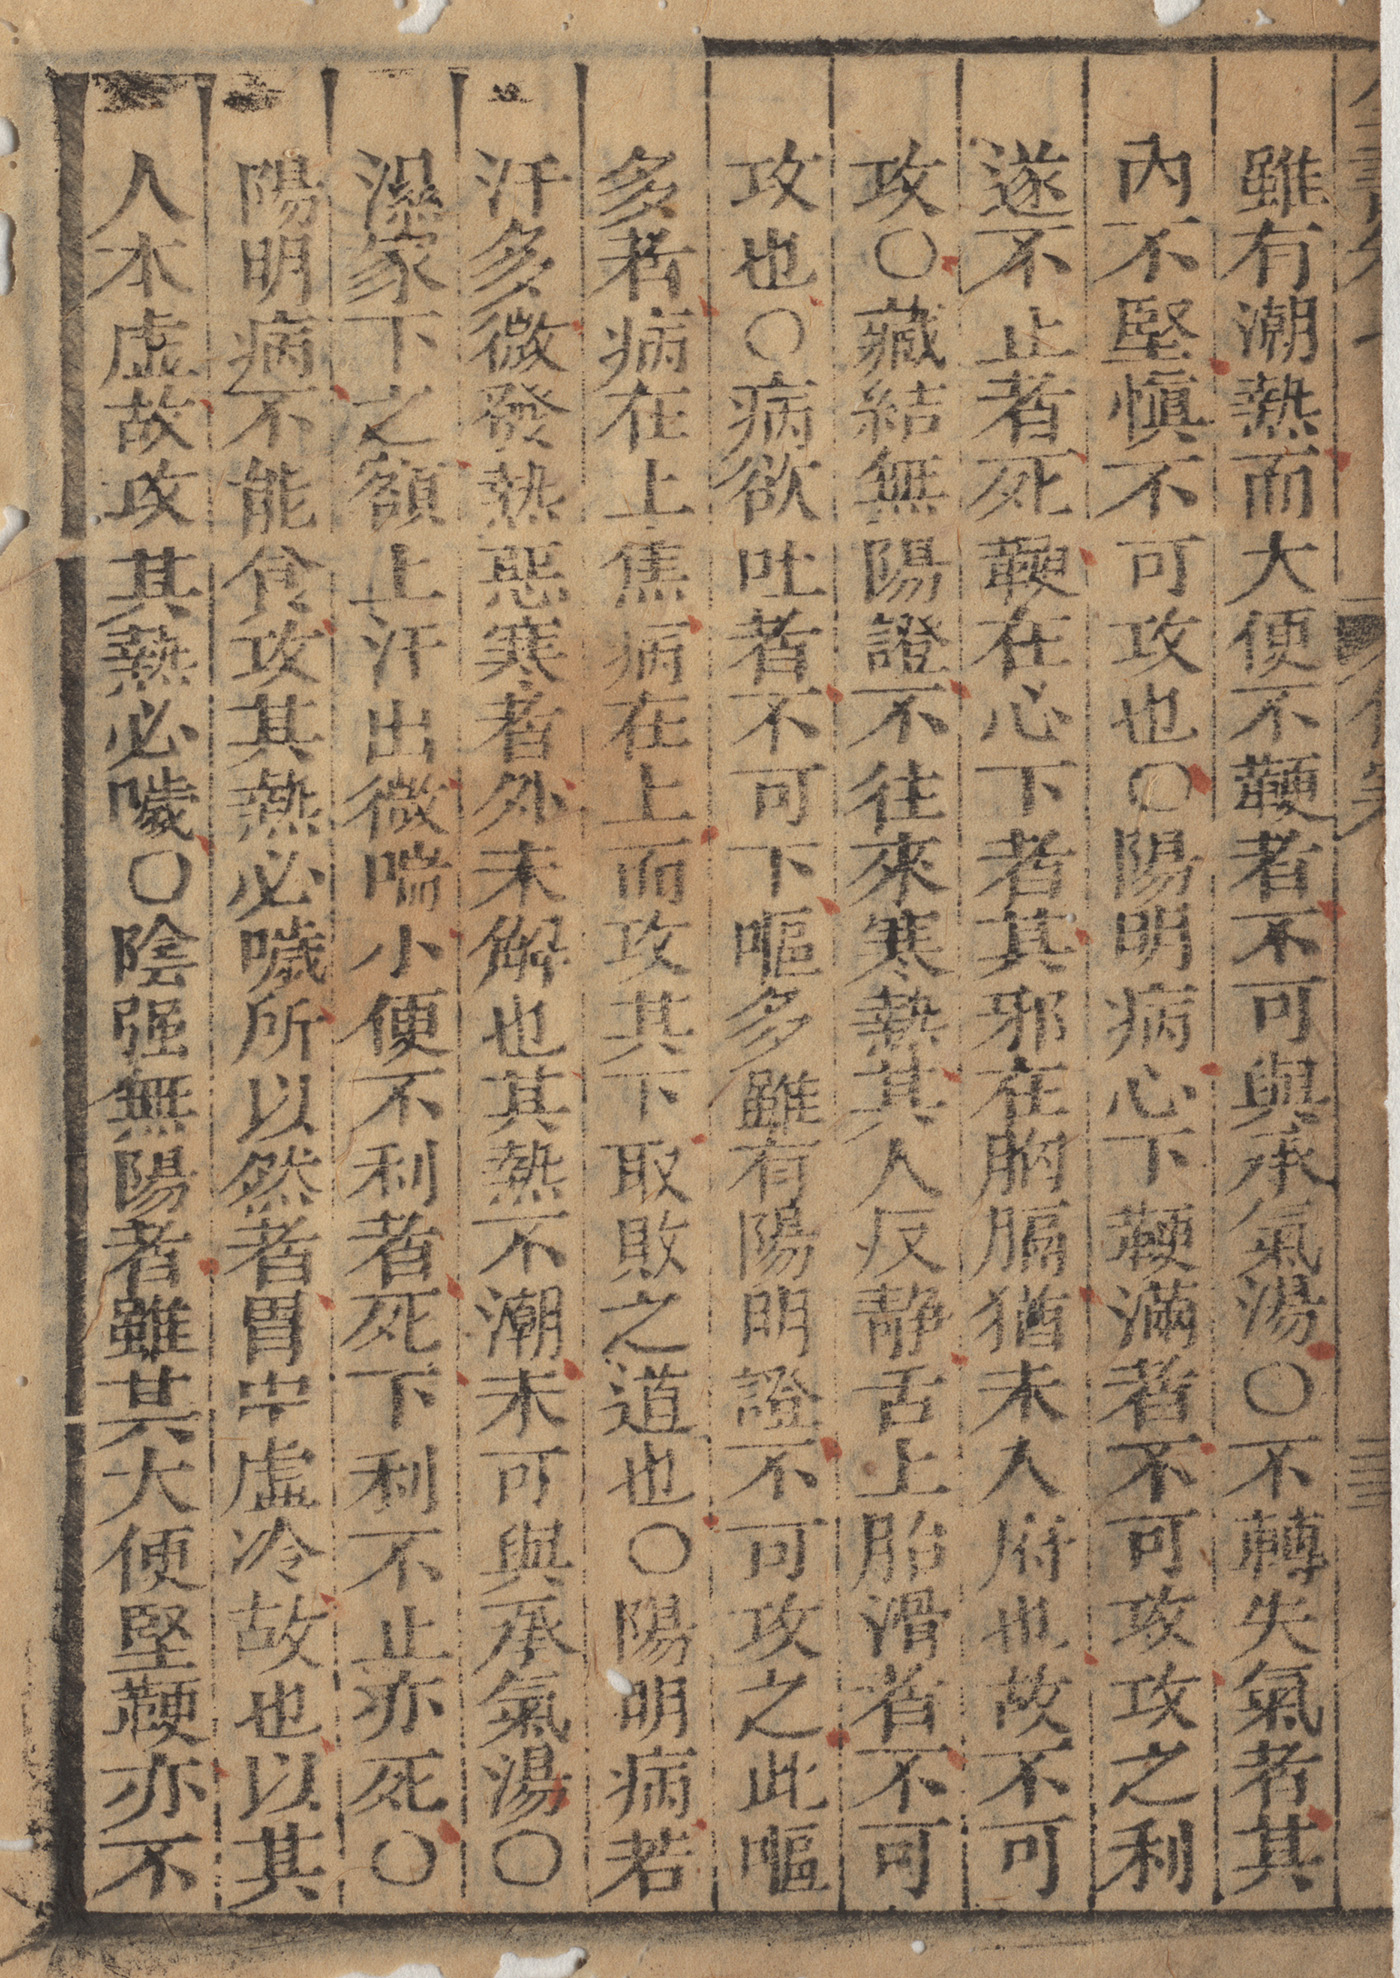 雖有潮熱而大便不鞕者不可與承氣湯〇不轉失氣者其
內不堅慎不可攻也〇陽明病心下鞕滿者不可攻攻之利
遂不止者死鞕在心下者其邪在胸膈猶未入府也故不可
攻〇藏結無陽證不往來寒熱其人反静舌上胎滑者不可
攻也〇病欲吐者不可下嘔多雖有陽明證不可攻之此嘔
多者病在上焦病在上而攻其下取敗之道也〇陽明病若
汗多微發熱惡寒者外未解也其熱不潮未可與承氣湯〇
濕家下之額上汗出微喘小便不利者死下利不止亦死〇
陽明病不能食攻其熱必噦所以然者胃中虛冷故也以其
人本虛故攻其熱必噦〇陰强無陽者雖其大便堅鞕亦不